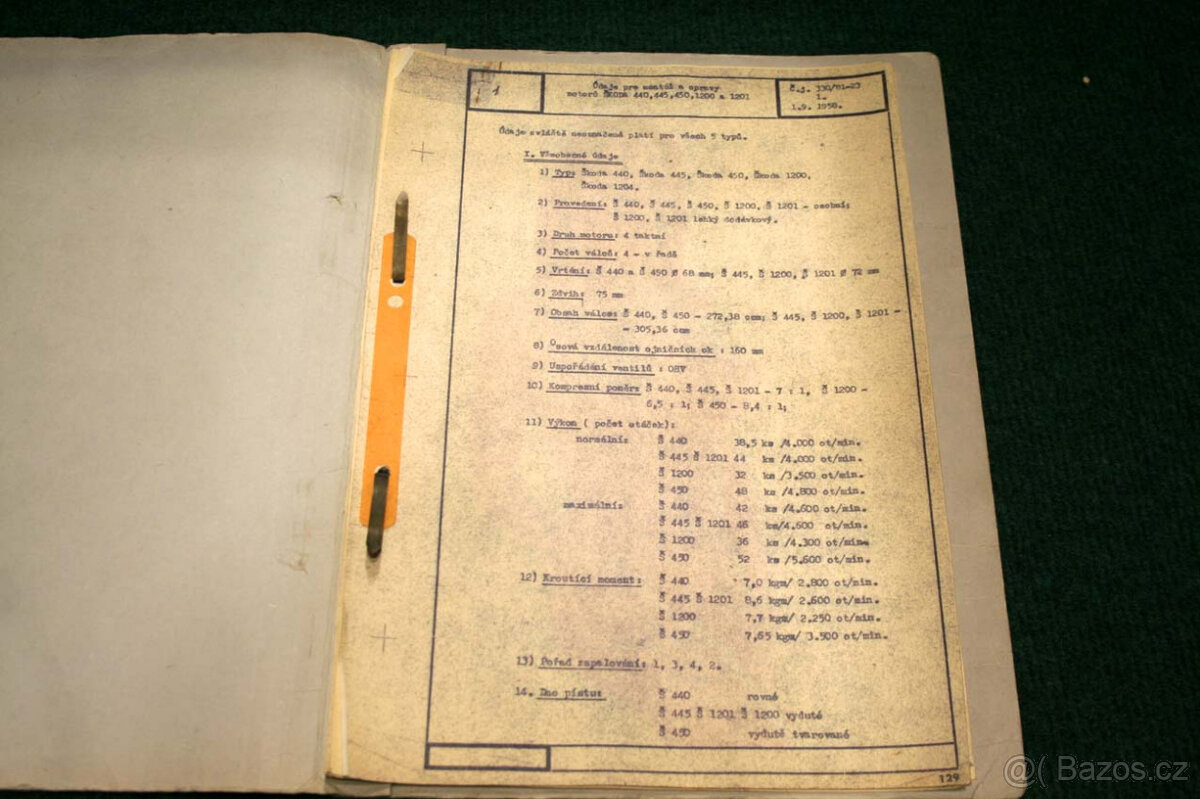 1
Údaje pro montáž a opravy
motorů ŠKODA 440,445,450,1200 a 1201
Č.j. 330/81-23
1.
1.9. 1958.
Údaje zvláště neoznačené platí pro všech 5 typů.
I. Všeobecné údaje
1) Typ: Škoda 440, Škoda 445, Škoda 450, Škoda 1200,
Škoda 1201.
2) Provedení: Š 440, Š 445, Š 450, Š 1200, Š 1201 - osobní;
Š 1200, Š 1201 lehký dodávkový.
3) Druh motoru: 4 taktní
4) Počet válců: 4 - v řadě
5) Vrtání: Š 440 a Š 450 ø 68 mm; Š 445, Š 1200, Š 1201 ø 72 mm
6) Zdvih: 75 mm
7) Obsah válce: Š 440, Š 450 - 272,38 ccm; Š 445, Š 1200, Š 1201 -
- 305,36 ccm
8) Osová vzdálenost ojničních ok : 160 mm
9) Uspořádání ventilů : OHV
10) Kompresní poměr: Š 440, Š 445, Š 1201 - 7 : 1, Š 1200 -
6,5 : 1; Š 450 - 8,4 : 1;
11) Výkon ( počet otáček):
normální: Š 440 38,5 ks /4.000 ot/min.
Š 445 Š 1201 44 ks /4.000 ot/min.
Š 1200 32 ks /3.500 ot/min.
Š 450 48 ks /4.800 ot/min.
maximální: Š 440 42 ks /4.600 ot/min.
Š 445 Š 1201 46 ks/4.600 ot/min.
Š 1200 36 ks /4.300 ot/min.
Š 450 52 ks /5.600 ot/min.
12) Kroutící moment: Š 440 7,0 kgm/ 2.800 ot/min.
Š 445 Š 1201 8,6 kgm/ 2.600 ot/min.
Š 1200 7,7 kgm/ 2.250 ot/min.
Š 450 7,65 kgm/ 3.500 ot/min.
13) Pořad zapalování: 1, 3, 4, 2.
14. Dno pístu: Š 440 rovné
Š 445 Š 1201 Š 1200 vyduté
Š 450 vydutě tvarované
129
@( Bazos.cz